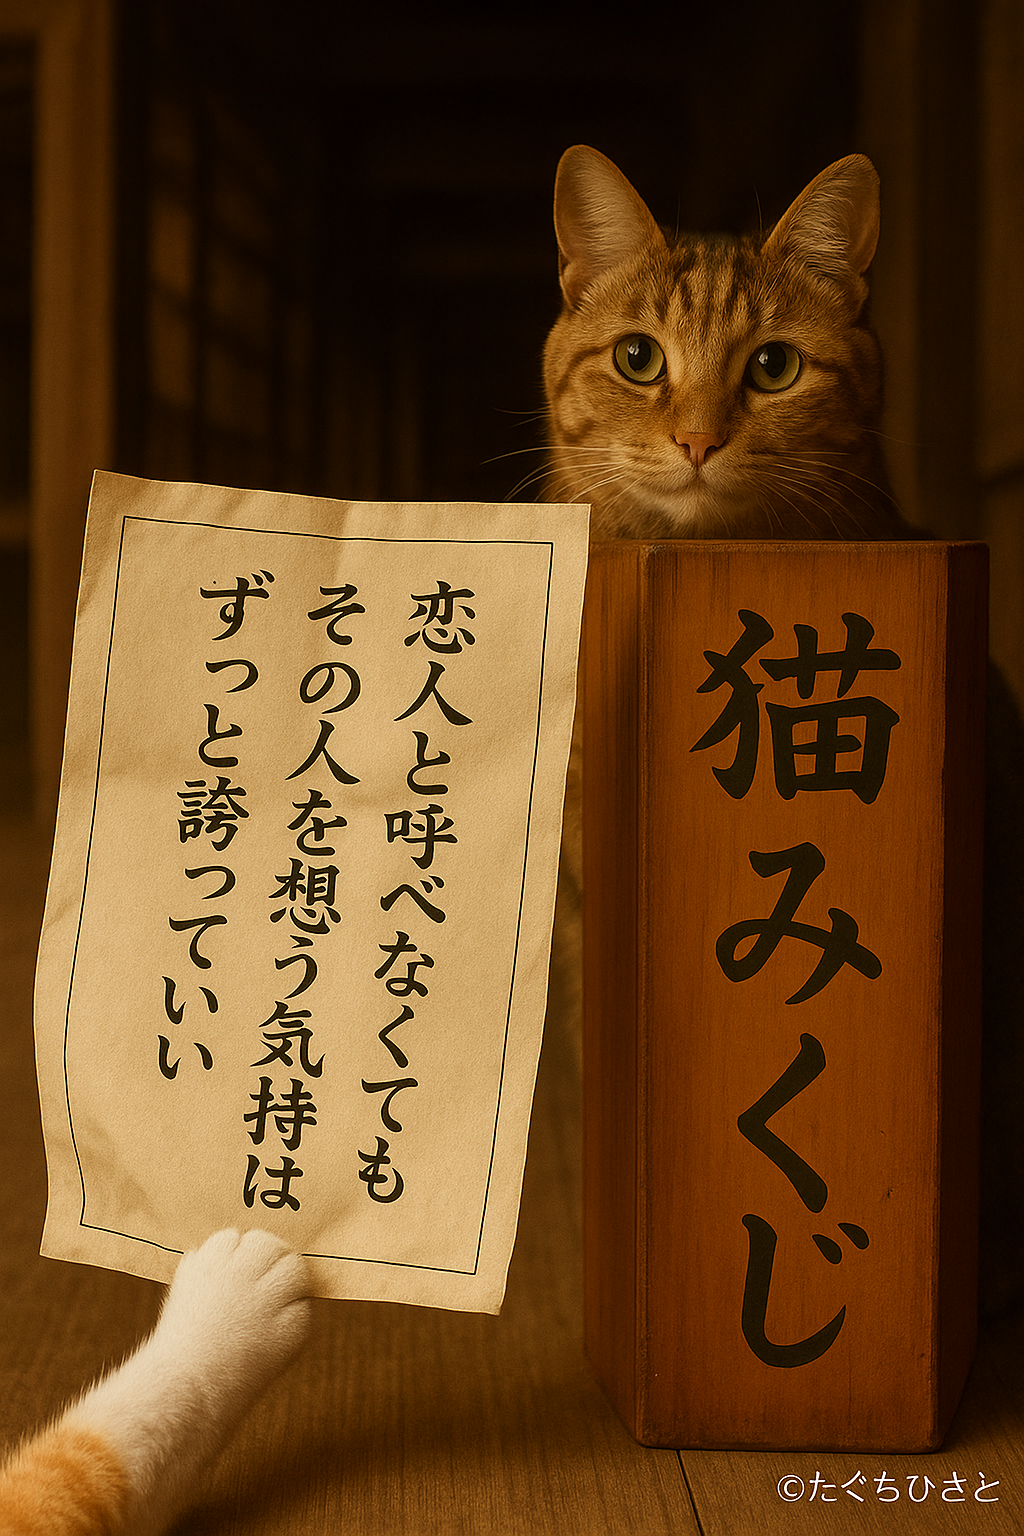 恋人と呼べなくても
その人を想う気持は
ずっと誇っていい
猫みくじ
©たぐちひさと